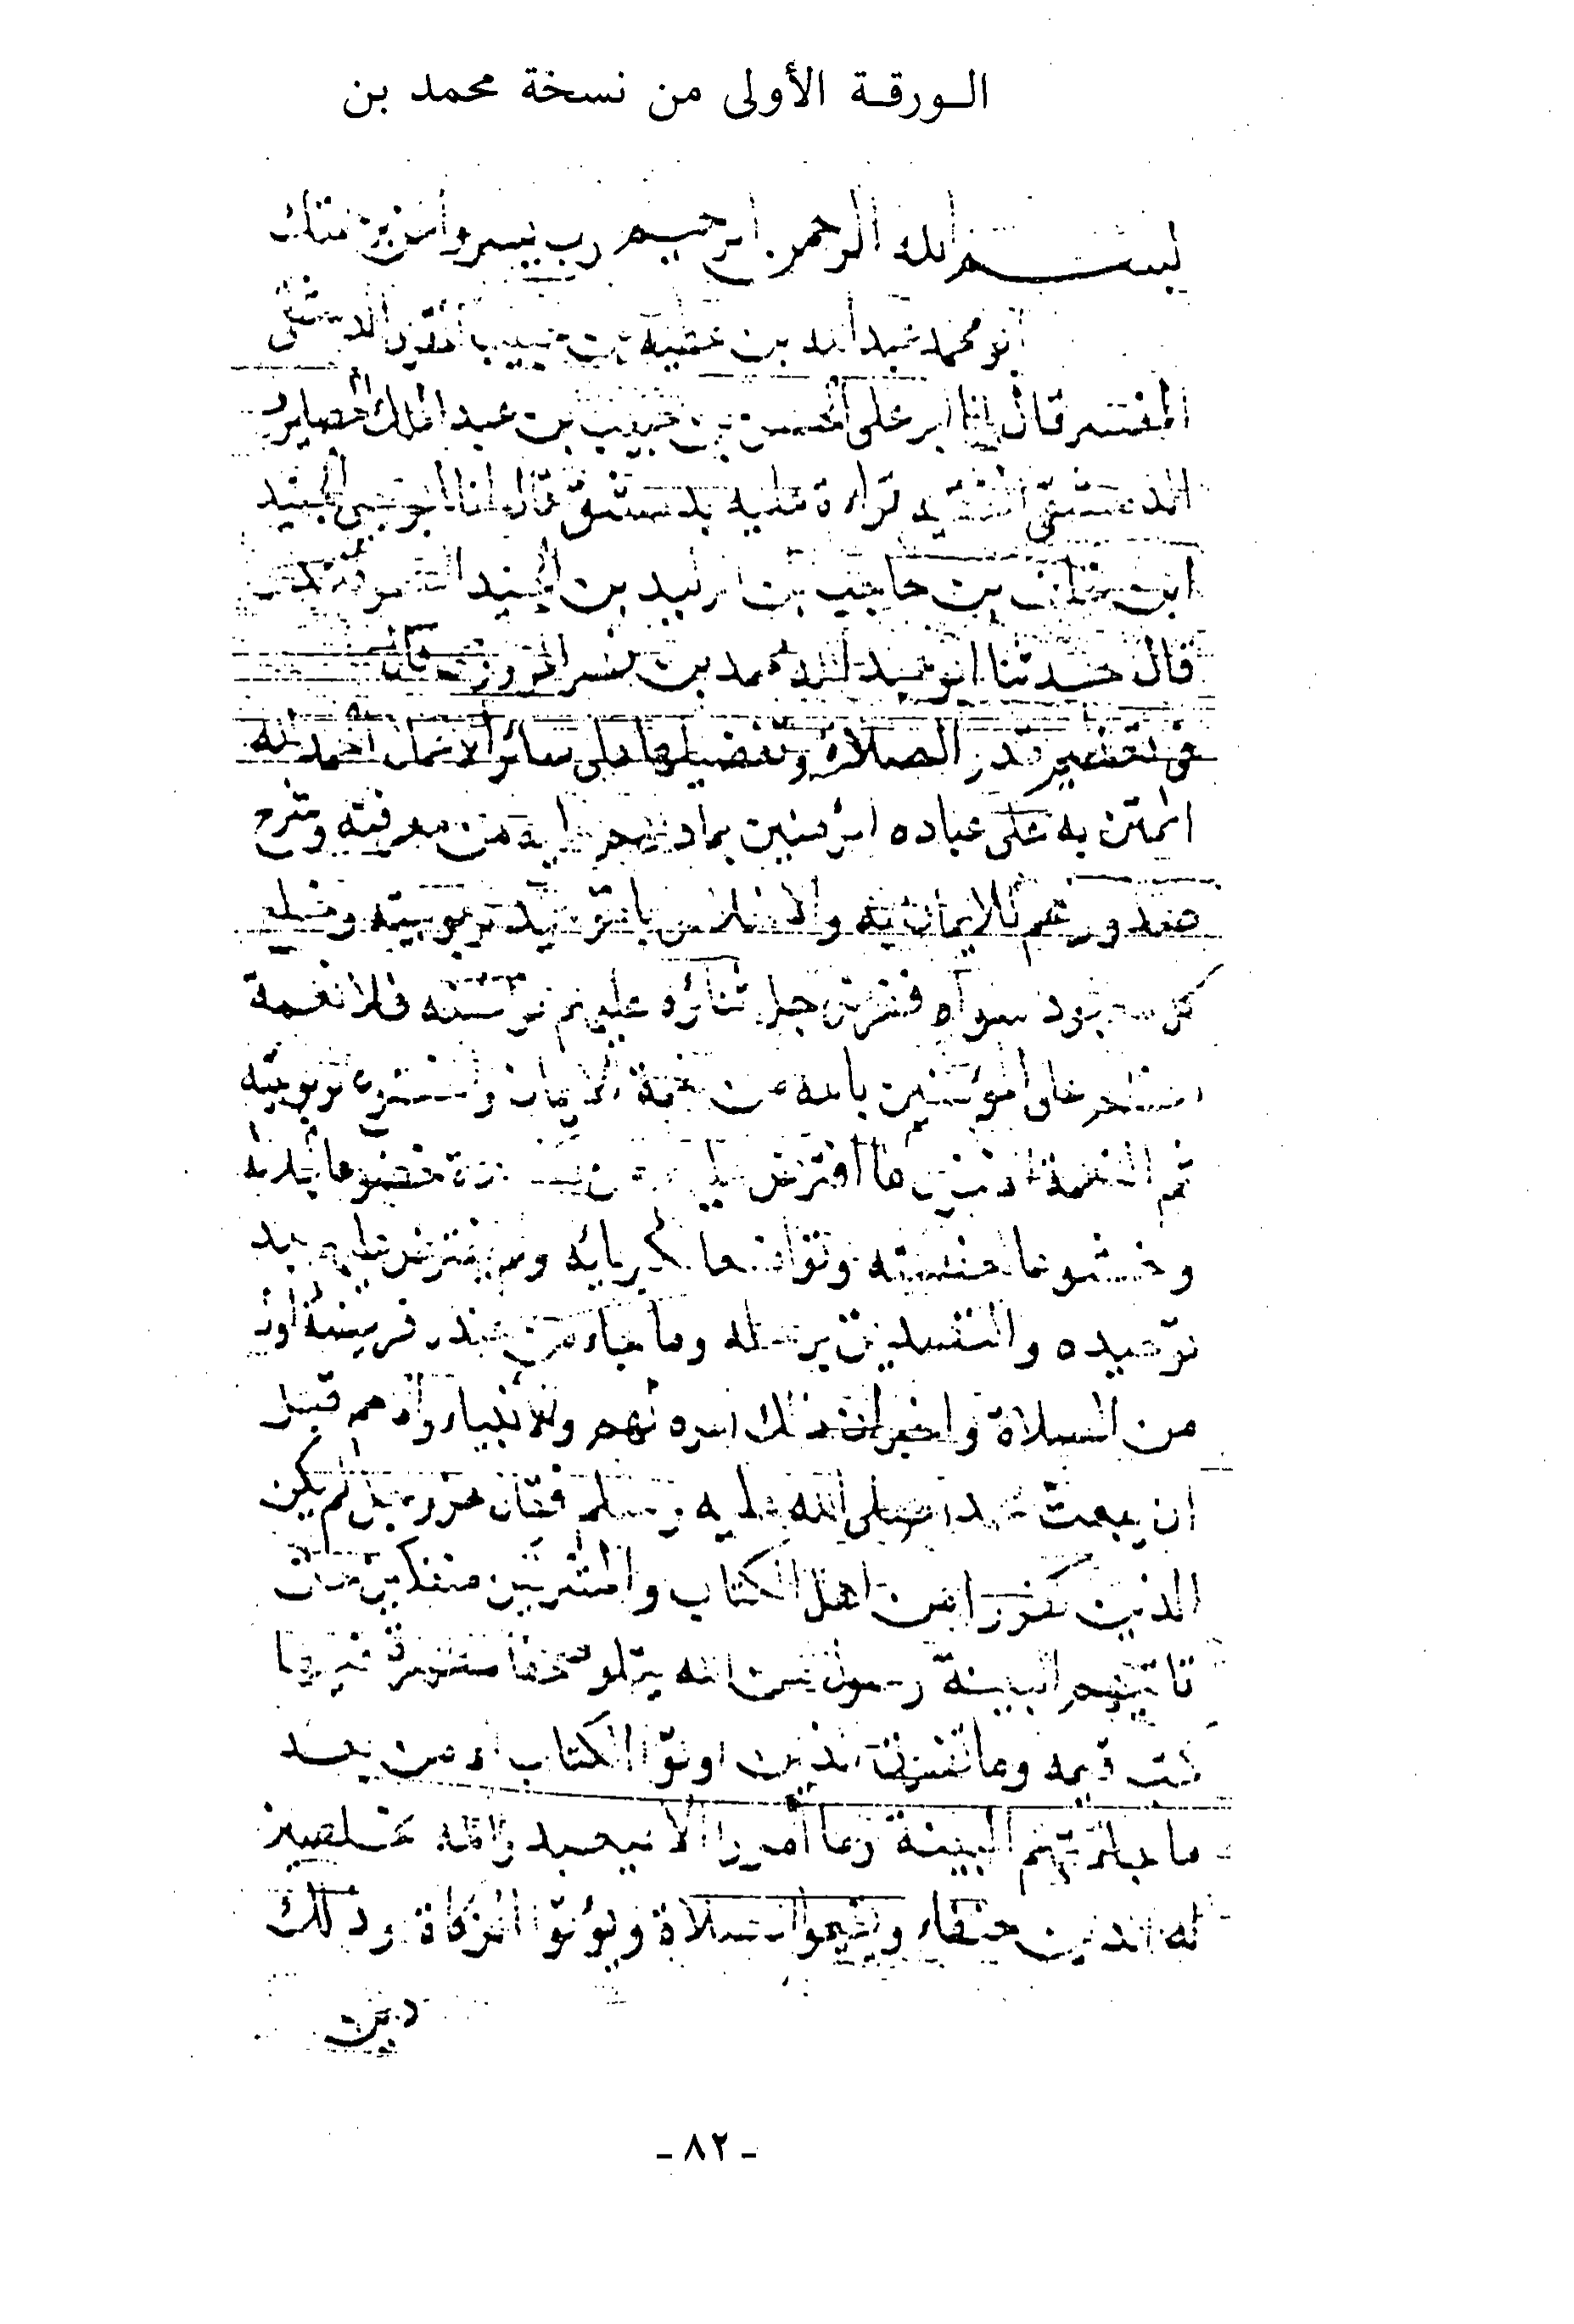 الـورقـة الأولى من نسخة محمد بن
بسم الله الرحمن الرحيم رب يسر وأعن برحمتك
أبو محمد عبد الله بن عطية بن حبيب الدمشقي
المفسر قال أنا أبو علي الحسن بن حبيب بن عبد الملك الحصايري
الدمشقي الفقيه قراءة عليه بدمشق قال أنا أبو يحيى الجنيد
ابن خلف بن حاجب بن الوليد بن الجنيد السمرقندي
قال حدثنا أبو عبد الله محمد بن نصر المروزي قال
في تعظيم قدر الصلاة وتفضيلها على سائر الأعمال الحمد لله
الممتن به على عباده المؤمنين بما دلهم به من معرفته وشرح
صدورهم للإيمان به والإخلاص بالتوحيد لربوبيته وخلع
كل معبود سواه فافترض جل ثناؤه عليهم فرائضه فلا نعمة
أعظم على المؤمنين بالله من نعمة الإيمان والخضوع لربوبيته
ثم النعمة الأخرى ما افترض عليهم من الصلاة خضوعا لجلاله
وخشوعا لعظمته وتواضعا لكبريائه ولم يفترض عليهم بعد
توحيده والتصديق برسله وما جاء من عنده فريضة أول
من الصلاة وأخبر أن ذلك أمره لهم وللأنبياء والأمم قبل
أن يبعث محمدا صلى الله عليه وسلم فقال عز وجل لم يكن
الذين كفروا من أهل الكتاب والمشركين منفكين حتى
تأتيهم البينة رسول من الله يتلو صحفا مطهرة فيها
كتب قيمه وما تفرق الذين اوتوا الكتاب إلا من بعد
ما جاءتهم البينة وما أمروا إلا ليعبدوا الله مخلصين
له الدين حنفاء ويقيموا الصلاة ويؤتوا الزكاة وذلك
دين
- ٨٢ -